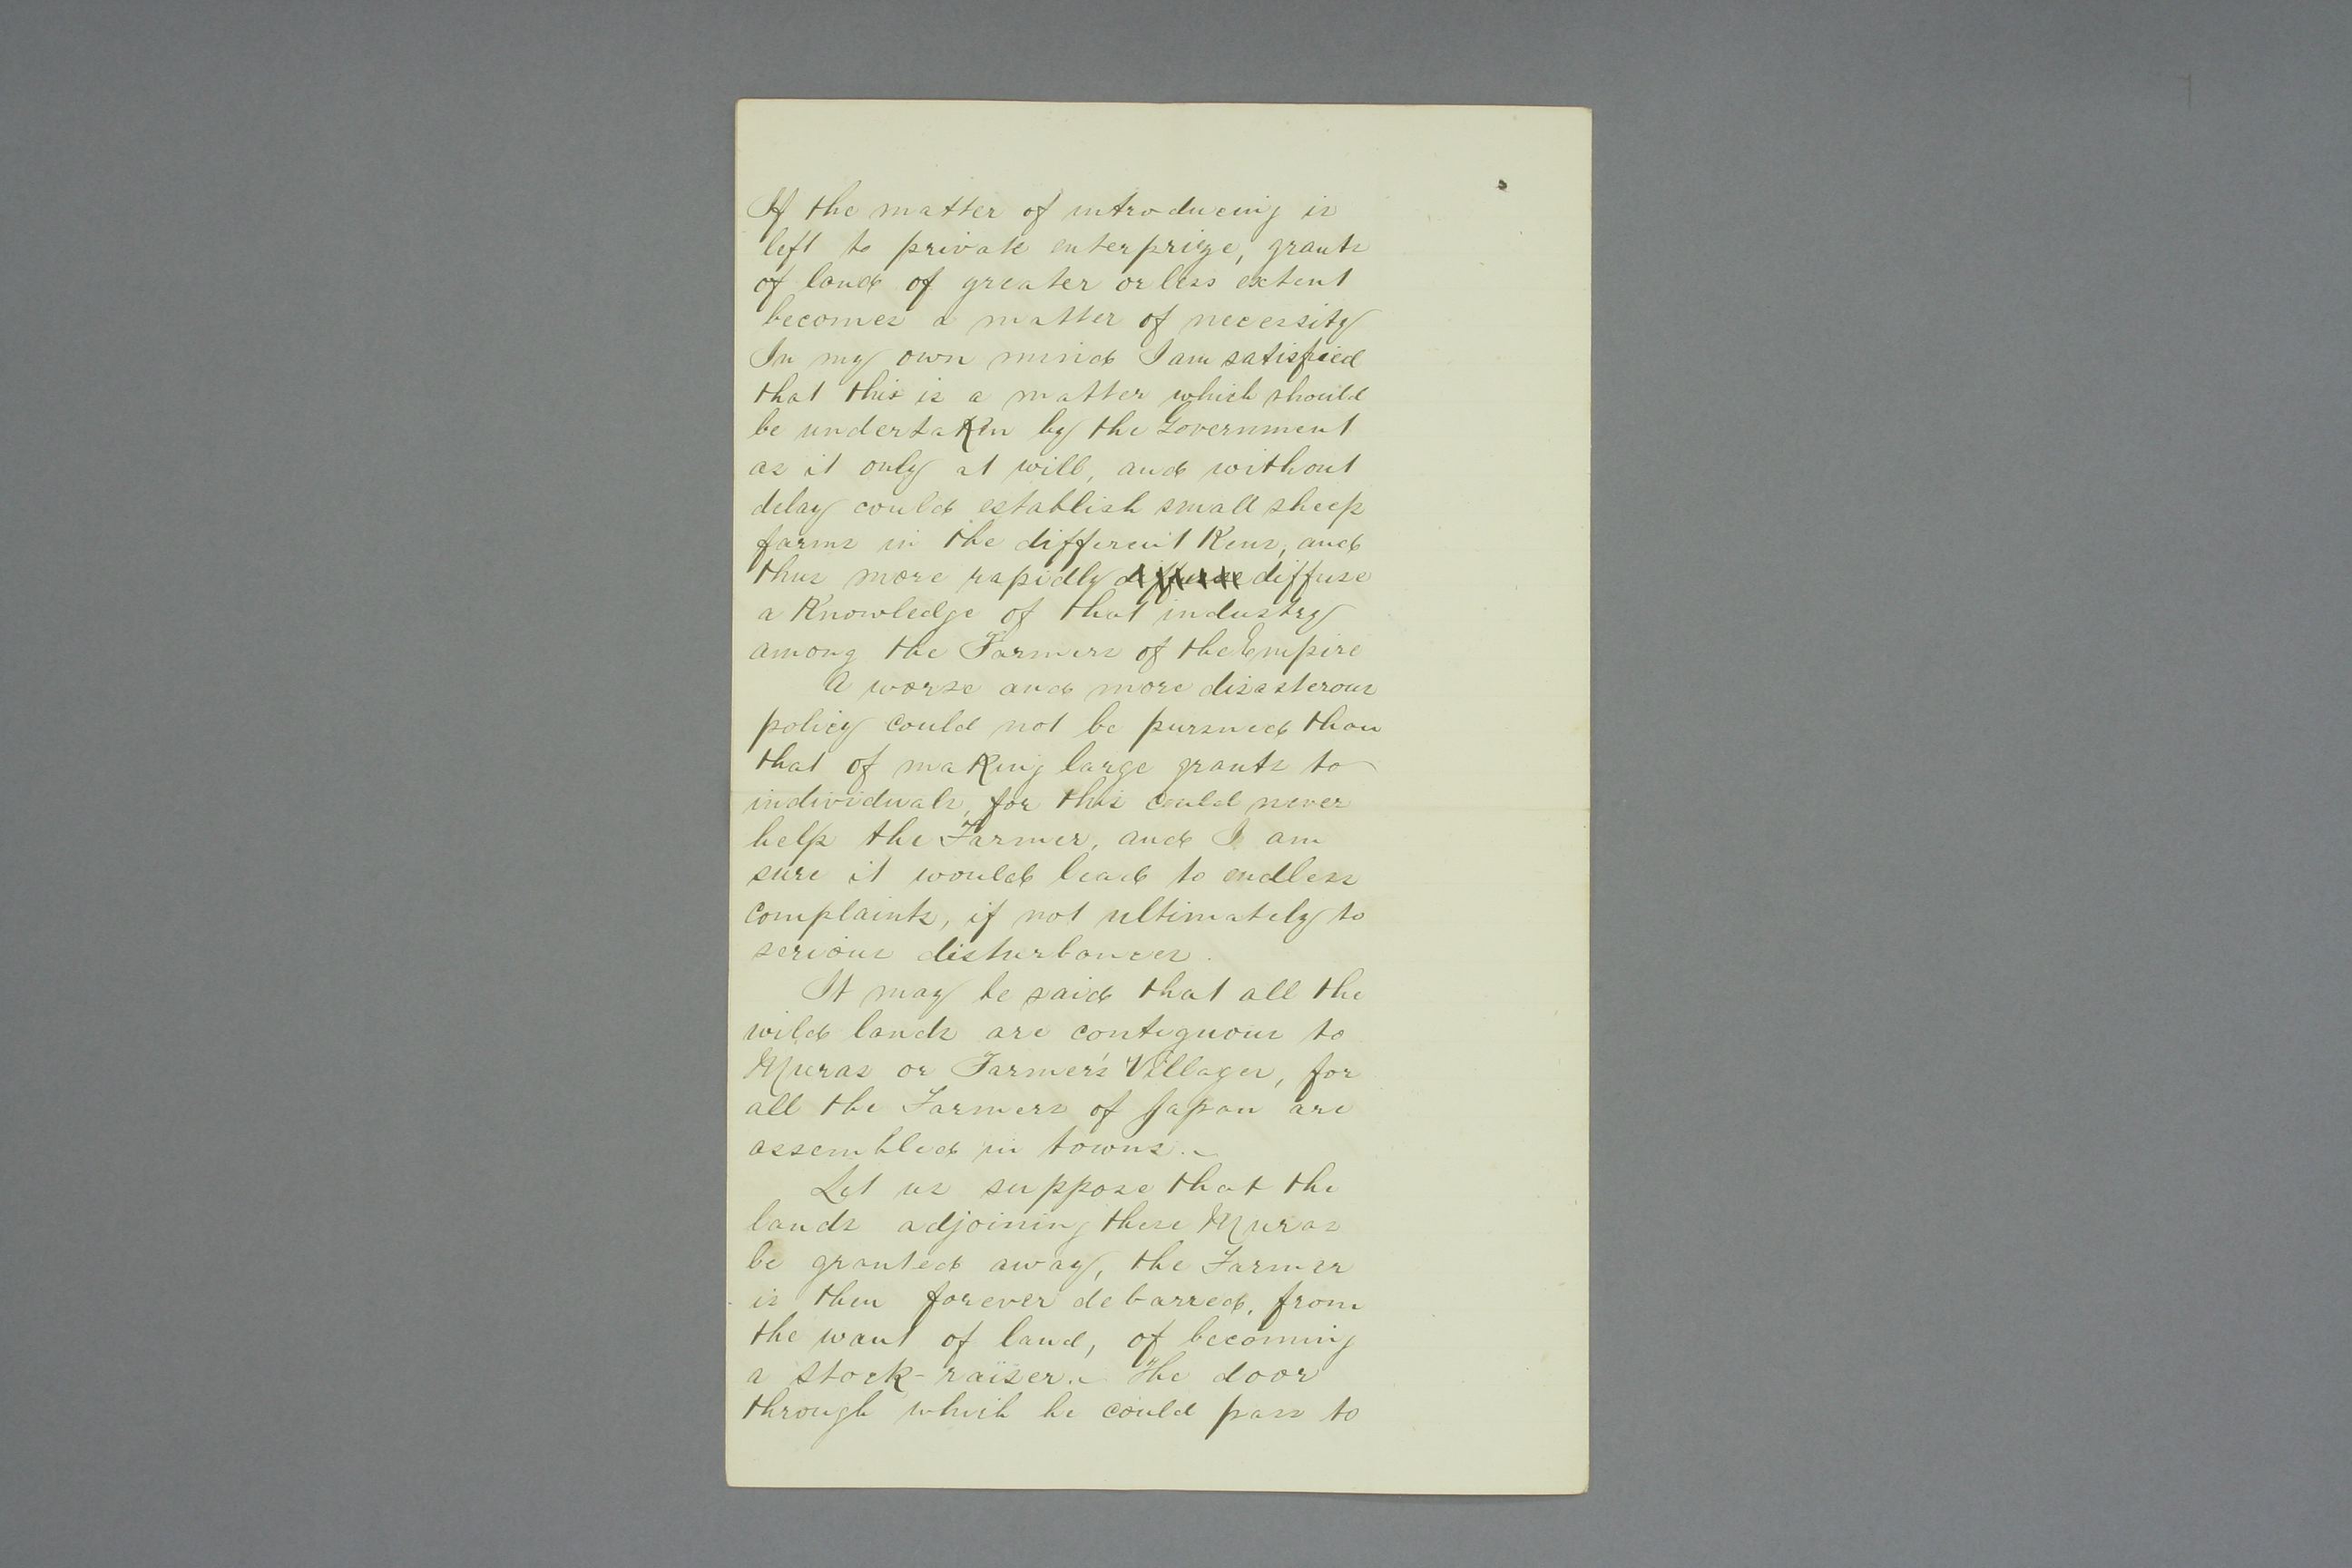 If the matter of introducing is
left to private enterprize, grants
of land of greater or less extent
becomes a matter of necessity
In my own mind I am satisfied
that this is a matter which should
be undertaken by the Government
as it only at will, and without
delay could establish small sheep
farms in the different Kens, and
thus more rapidly diffuse
a Knowledge of that industry
among the Farmers of the Empire
A worse and more disasterous
policy could not be pursued than
that of making large grants to
individuals, for this could never
help the Farmer, and I am
sure it would lead to endless
complaints, if not ultimately to
serious disturbances.
It may be said that all the
wild lands are contiguous to
Muras or Farmer's Villages, for
all the Farmers of Japan are
assembled in towns.
Let us suppose that the
lands adjoining these Muras
be granted away, the Farmer
is then forever debarred, from
the want of land, of becoming
a stock-raiser. The door
through which he could pass to